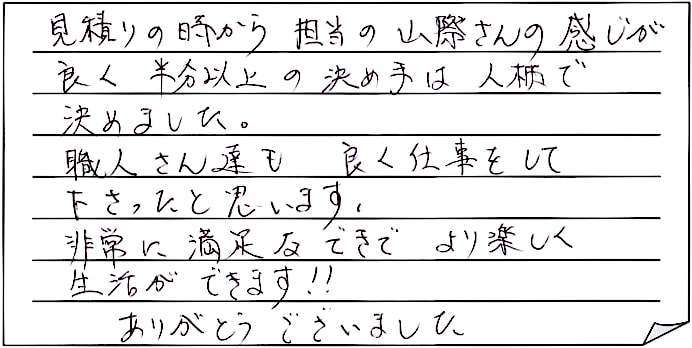 見積りの時から 担当の山際さんの感じが
良く 半分以上の決め手は 人柄で
決めました。
職人さん達も 良く仕事をして
下さったと思います。
非常に満足なできで より楽しく
生活が できます!!
ありがとうございました